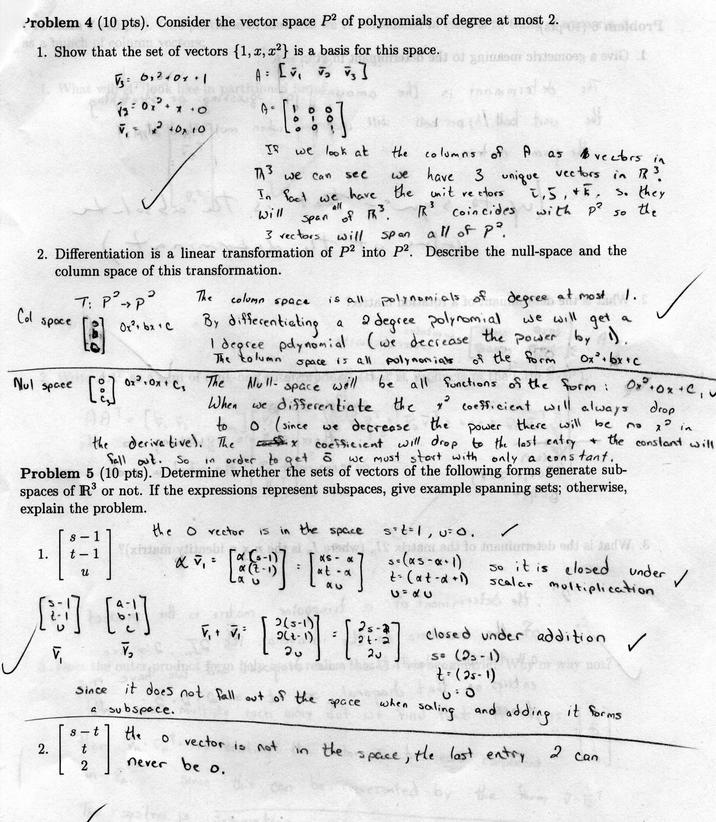 Problem 4 (10 pts). Consider the vector space P² of polynomials of degree at most 2.
1. Show that the set of vectors {1, x, x²} is a basis for this space.
v̄₃ = 0x² + 0x + 1
A = [v̄₁ v̄₂ v̄₃]
v̄₂ = 0x² + x + 0
v̄₁ = x² + 0x + 0
A = [1 0 0; 0 1 0; 0 0 1]
If we look at the columns of A as vectors in
ℝ³ we can see we have 3 unique vectors in ℝ³.
In fact we have the unit vectors ī, j̄, + k̄. So they
will span all of ℝ³. ℝ³ coincides with P² so the
3 vectors will span all of P².
2. Differentiation is a linear transformation of P² into P². Describe the null-space and the
column space of this transformation.
T: P² → P²
The column space is all polynomials of degree at most 1.
Col space
0x² + bx + c
By differentiating a 2 degree polynomial we will get a
1 degree polynomial (we decrease the power by 1).
The column space is all polynomials of the form 0x² + bx + c
Nul space [0; 0; c₁] 0x² + 0x + c₁
The Null-space will be all functions of the form: 0x² + 0x + c,
When we differentiate the x² coefficient will always drop
to 0 (since we decrease the power there will be no x² in
the derivative). The x coefficient will drop to the last entry + the constant will
fall out. So in order to get 0̄ we must start with only a constant.
Problem 5 (10 pts). Determine whether the sets of vectors of the following forms generate sub-
spaces of ℝ³ or not. If the expressions represent subspaces, give example spanning sets; otherwise,
explain the problem.
the 0 vector is in the space s=t=1, u=0.
1. [s − 1; t − 1; u]
α v̄₁ = [α(s-1); α(t-1); αu] = [αs - α; αt - α; αu]
s = (αs - α + 1)
t = (αt - α + 1)
u = αu
so it is closed under
scalar multiplication
[s-1; t-1; u] [a-1; b-1; c]
v̄₁ v̄₂
v̄₁ + v̄₁ = [2(s-1); 2(t-1); 2u] = [2s-2; 2t-2; 2u]
closed under addition
s = (2s-1)
t = (2s-1)
u = 0
Since it does not fall out of the space when saling and adding it forms
a subspace.
2. [s − t; t; 2]
the 0 vector is not in the space, the last entry 2 can
never be 0.